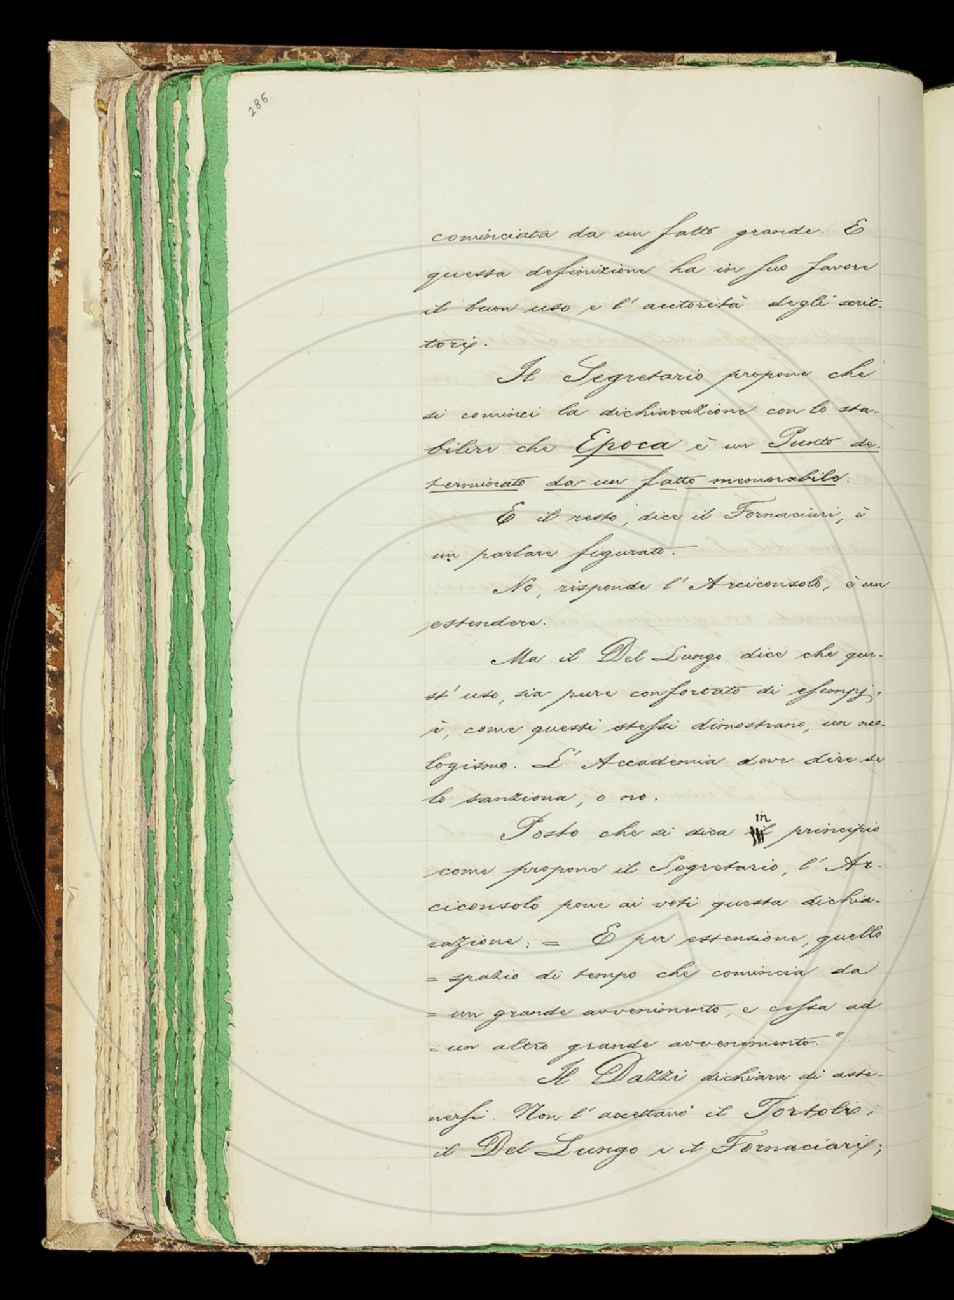 286
cominciata da un fatto grande. E
questa definizione ha in suo favore
il buon uso e l'autorità degli scrit-
torj.
Il Segretario propone che
si cominci la dichiarazione con lo sta-
bilire che Epoca è un Punto de-
terminato da un fatto memorabile.
E il resto, dice il Fornaciari, è
un parlare figurato.
No, risponde l'Arciconsolo, è un
estendere.
Ma il Del Lungo dice che que-
st'uso, sia pure confortato di esempj,
è, come questi stessi dimostrano, un neo-
logismo. L'Accademia deve dire se
lo sanziona, o no.
Posto che si dica in principio
come propone il Segretario, l'Ar-
ciconsolo pone ai voti questa dichia-
razione: = E per estensione, quello
= spazio di tempo che comincia da
= un grande avvenimento, e cessa ad
= un altro grande avvenimento."
Il Dazzi dichiara di aste-
nersi. Non l'accettano il Tortoli,
il Del Lungo e il Fornaciarj;